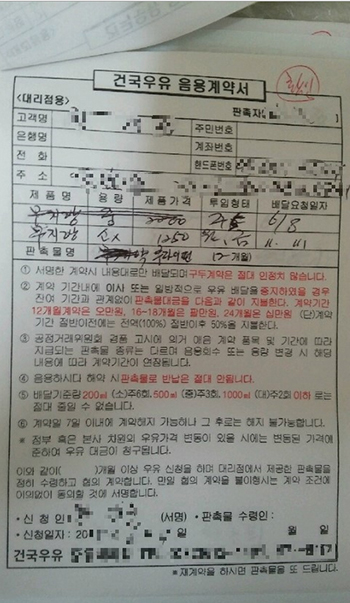 건국우유 음용계약서
<대리점용>
판촉자
고객명
주민번호
은행명
계좌번호
전 화
핸드폰번호
주 소
제 품 명 용 량 제품가격 투입형태 배달요청일자
6/8
1250
판촉물명
① 서명한 계약시 내용대로만 배달되며 구두계약은 절대 인정치 않습니다.
② 계약 기간내에 이사 또는 일반적으로 우유 배달을 중지하였을 경우
잔여 기간과 관계없이 판촉물대금을 다음과 같이 지불한다. 계약기간
12개월계약은 오만원, 16~18개월은 팔만원, 24개월은 십만원 (단)계약
기간 절반이전에는 전액(100%) 절반이후 50%을 지불한다.
③ 공정거래위원회 경품 고시에 의거 애음 계약 품목 및 기간에 따라
지급되는 판촉물 종류는 다르며 음용회수 또는 용량 변경 시 해당
내용에 따라 계약기간이 연장됩니다.
④ 음용하시다 해약 시 판촉물로 반납은 절대 안됩니다.
⑤ 배달기준량 200㎖ (소)주6회, 500㎖ (중)주3회, 1000㎖ (대)주2회 이하로는
절대 줄일 수 없습니다.
⑥ 계약일 7일 이내에 계약해지 가능하나 그 후로는 해지 불가능합니다.
* 정부 혹은 본사 차원의 우유가격 변동이 있을 시에는 변동된 가격에
준하여 우유 대금이 청구됩니다.
이와 같이( )개월 이상 우유 신청을 하며 대리점에서 제공한 판촉물을
정히 수령하고 합의 계약합니다. 만일 합의 계약을 불이행시는 계약 조건에
이의없이 동의할 것에 서명합니다.
• 신 청 인 (서명) • 판촉물 수령인 :
• 신청일자 : 20 일 월 일
건국우유
*재계약을 하시면 판촉물을 또 드립니다.